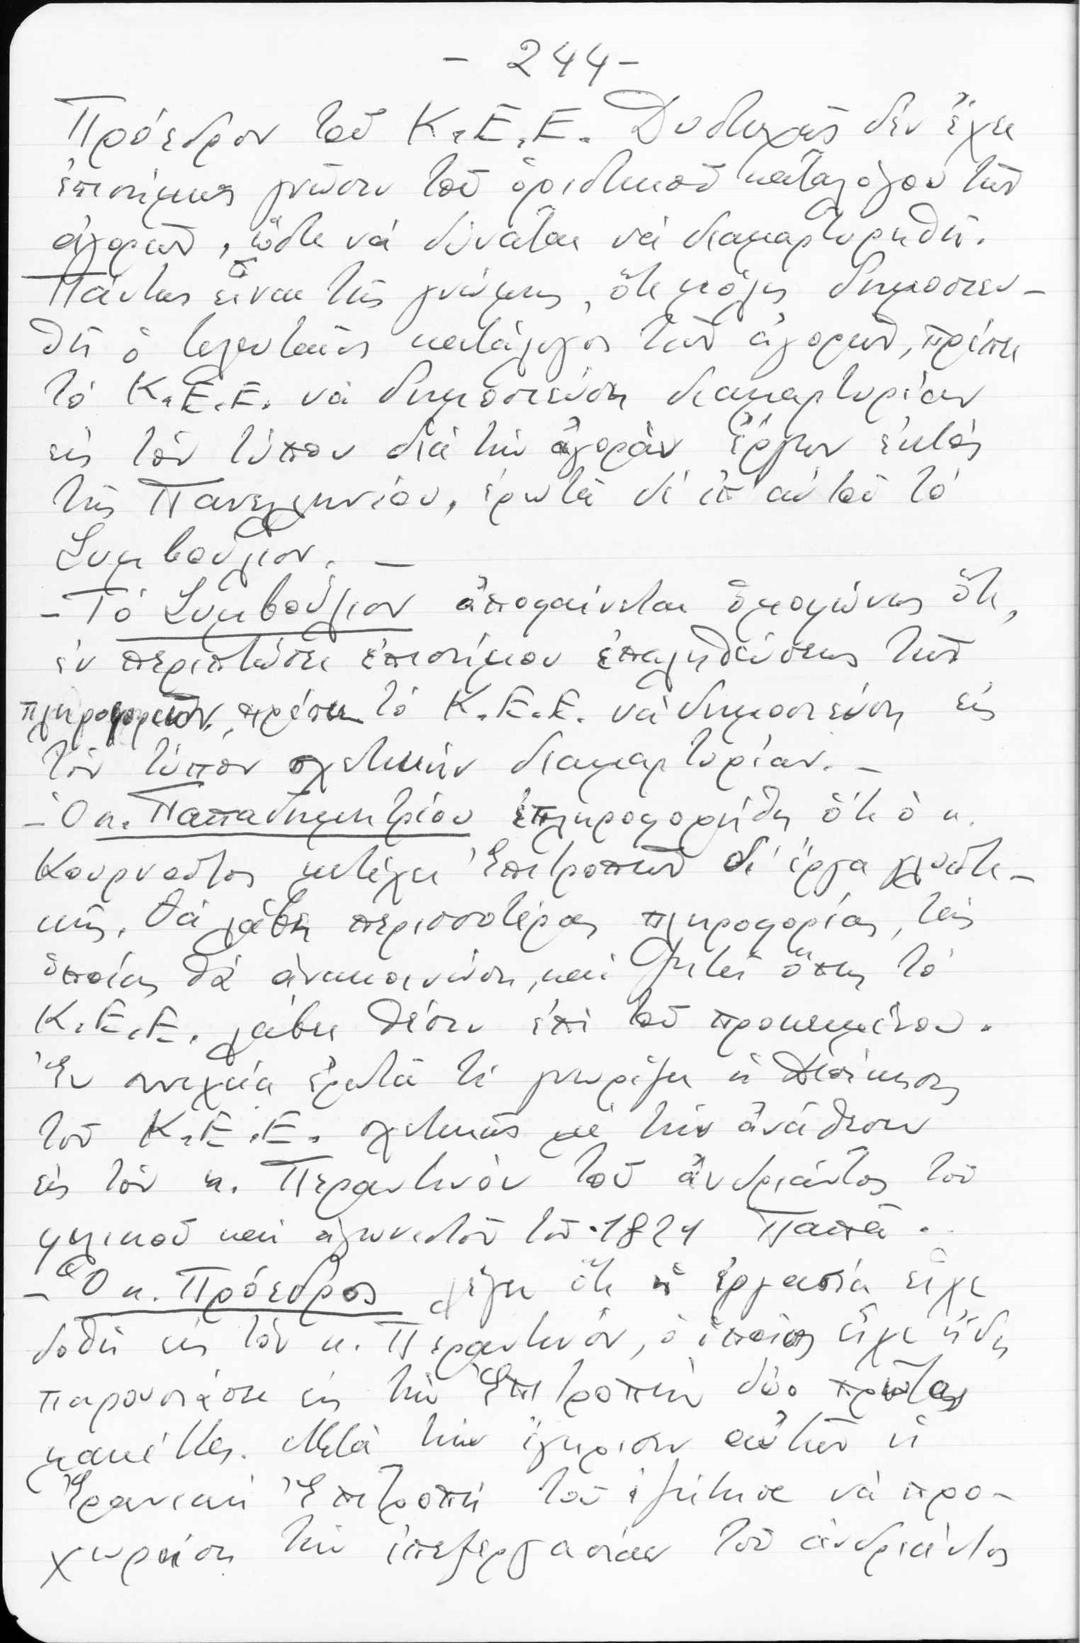 - 244 -
Πρόεδρον τοῦ Κ.Ε.Ε. Δυστυχῶς δέν ἔχει
ἐπισήμως γνῶσιν τοῦ ὁριστικοῦ καταλόγου τῶν
ἀγορῶν, ὥστε νά δύναται νά διαμαρτυρηθῇ.
Πάντως εἶναι τῆς γνώμης, ὅτι μόλις δημοσιευ-
θῇ ὁ τελευταῖος κατάλογος τῶν ἀγορῶν, πρέπει
τό Κ.Ε.Ε. νά δημοσιεύσῃ διαμαρτυρίαν
εἰς τόν τύπον διά τήν ἀγοράν ἔργων ἐκτός
τῆς Πανελληνίου, ἐρωτᾶ δέ ἐπ' αὐτοῦ τό
Συμβούλιον. —
- Τό Συμβούλιον ἀποφαίνεται ὁμοφώνως ὅτι,
ἐν περιπτώσει ἐπισήμου ἐπαληθεύσεως τῶν
πληροφοριῶν, πρέπει τό Κ.Ε.Ε. νά δημοσιεύσῃ εἰς
τόν τύπον σχετικήν διαμαρτυρίαν. —
- Ὁ κ. Παπαδημητρίου ἐπληροφορήθη ὅτι ὁ κ.
Κουρνοῦτος μετέχει Ἐπιτροπῶν δι' ἔργα γλυπτι-
κῆς. Θά λάβῃ περισσοτέρας πληροφορίας, τάς
ὁποίας θά ἀνακοινώσῃ, καί ζητεῖ ὅπως τό
Κ.Ε.Ε. λάβῃ θέσιν ἐπί τοῦ προκειμένου.
Ἐν συνεχείᾳ ἐρωτᾶ τί γνωρίζει ἡ Διοίκησις
τοῦ Κ.Ε.Ε. σχετικῶς μέ τήν ἀνάθεσιν
εἰς τόν κ. Περαντινόν τοῦ ἀνδριάντος τοῦ
φιλικοῦ καί ἀγωνιστοῦ τοῦ 1821 Παπᾶ.
- Ὁ κ. Πρόεδρος λέγει ὅτι ἡ ἐργασία εἶχε
δοθῆ εἰς τόν κ. Περαντινόν, ὁ ὁποῖος εἶχε ἤδη
παρουσιάσει εἰς τήν Ἐπιτροπήν δύο πρώτας
μακέττες. Μετά τήν ἔγκρισιν αὐτῶν ἡ
Ἐρανική Ἐπιτροπή τοῦ ἐζήτησε νά προ-
χωρήσῃ τήν ἐπεξεργασίαν τοῦ ἀνδριάντος